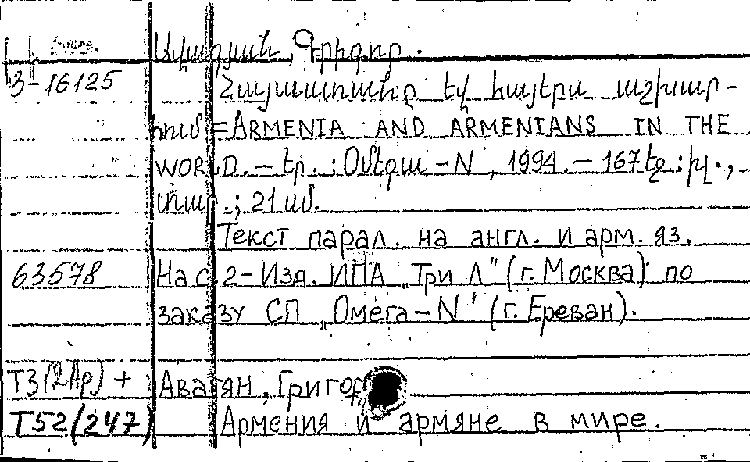 Ավագյան, Գրիգոր.
3-16125
Հայաստանը եվ հայերս աշխար-
հում = ARMENIA AND ARMENIANS IN THE
WORLD. – Եր. : Օմեգա – N, 1994. – 167 էջ : իլ.,
տար.; 21 սմ.
Текст парал. на англ. и арм. яз.
63578 На с. 2 - Изд. ИПА „Три Л" (г. Москва) по
заказу СП „Омега – N" (г. Ереван).
Т3(2Ар) + Авагян, Григор
Т52(247) Армения и армяне в мире.